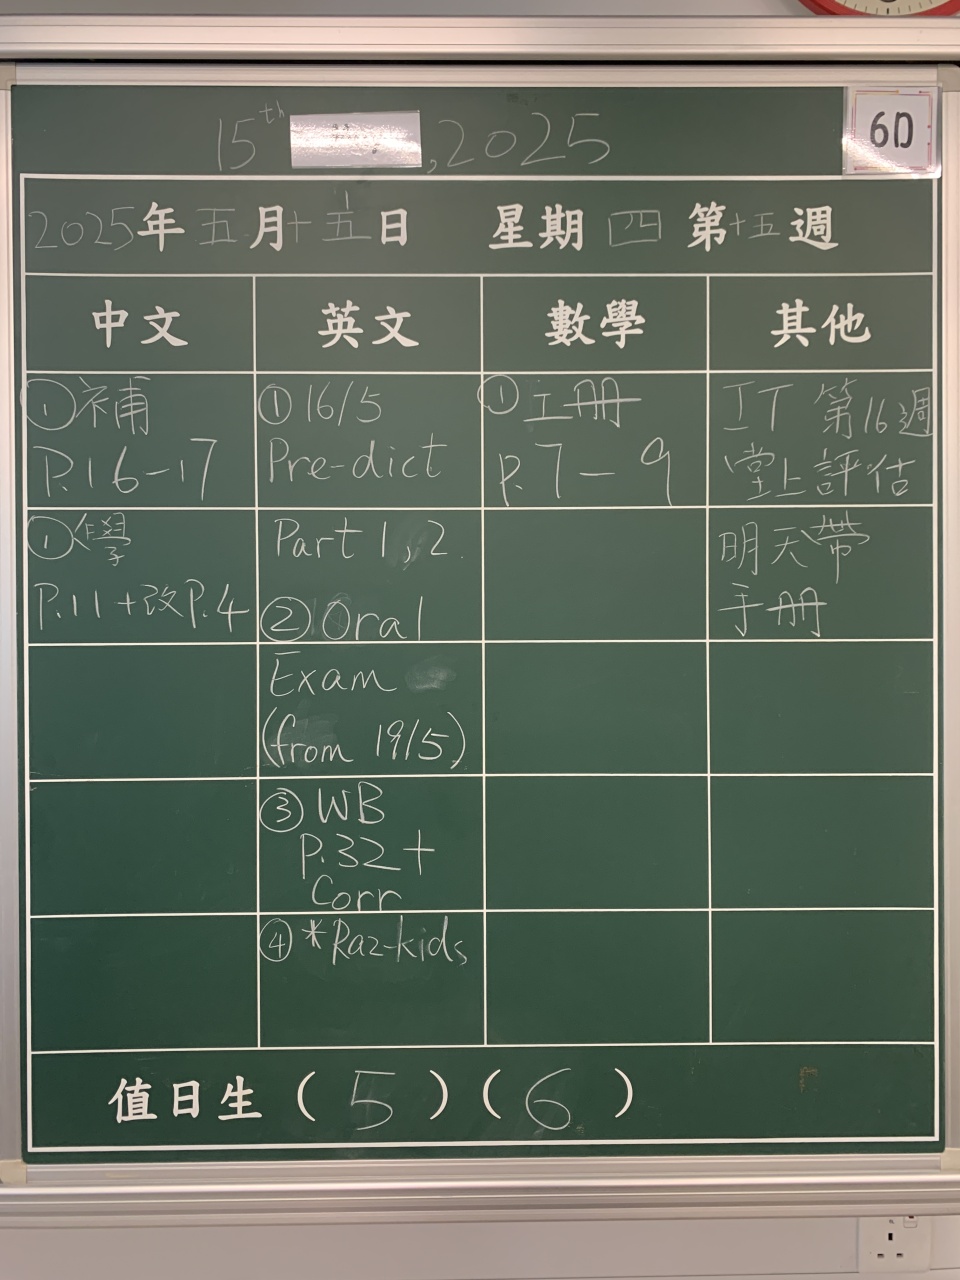 15th , 2025
6D
2025年五月十五日 星期四 第十五週
中文 英文 數學 其他
①補
P.16-17
①學
P.11+改P.4
①16/5
Pre-dict
Part 1, 2.
②Oral
Exam
(from 19/5)
③WB
P.32+
Corr
④*Raz-kids
①工冊
P.7-9
IT 第16週
堂上評估
明天帶
手冊
值日生(5)(6)